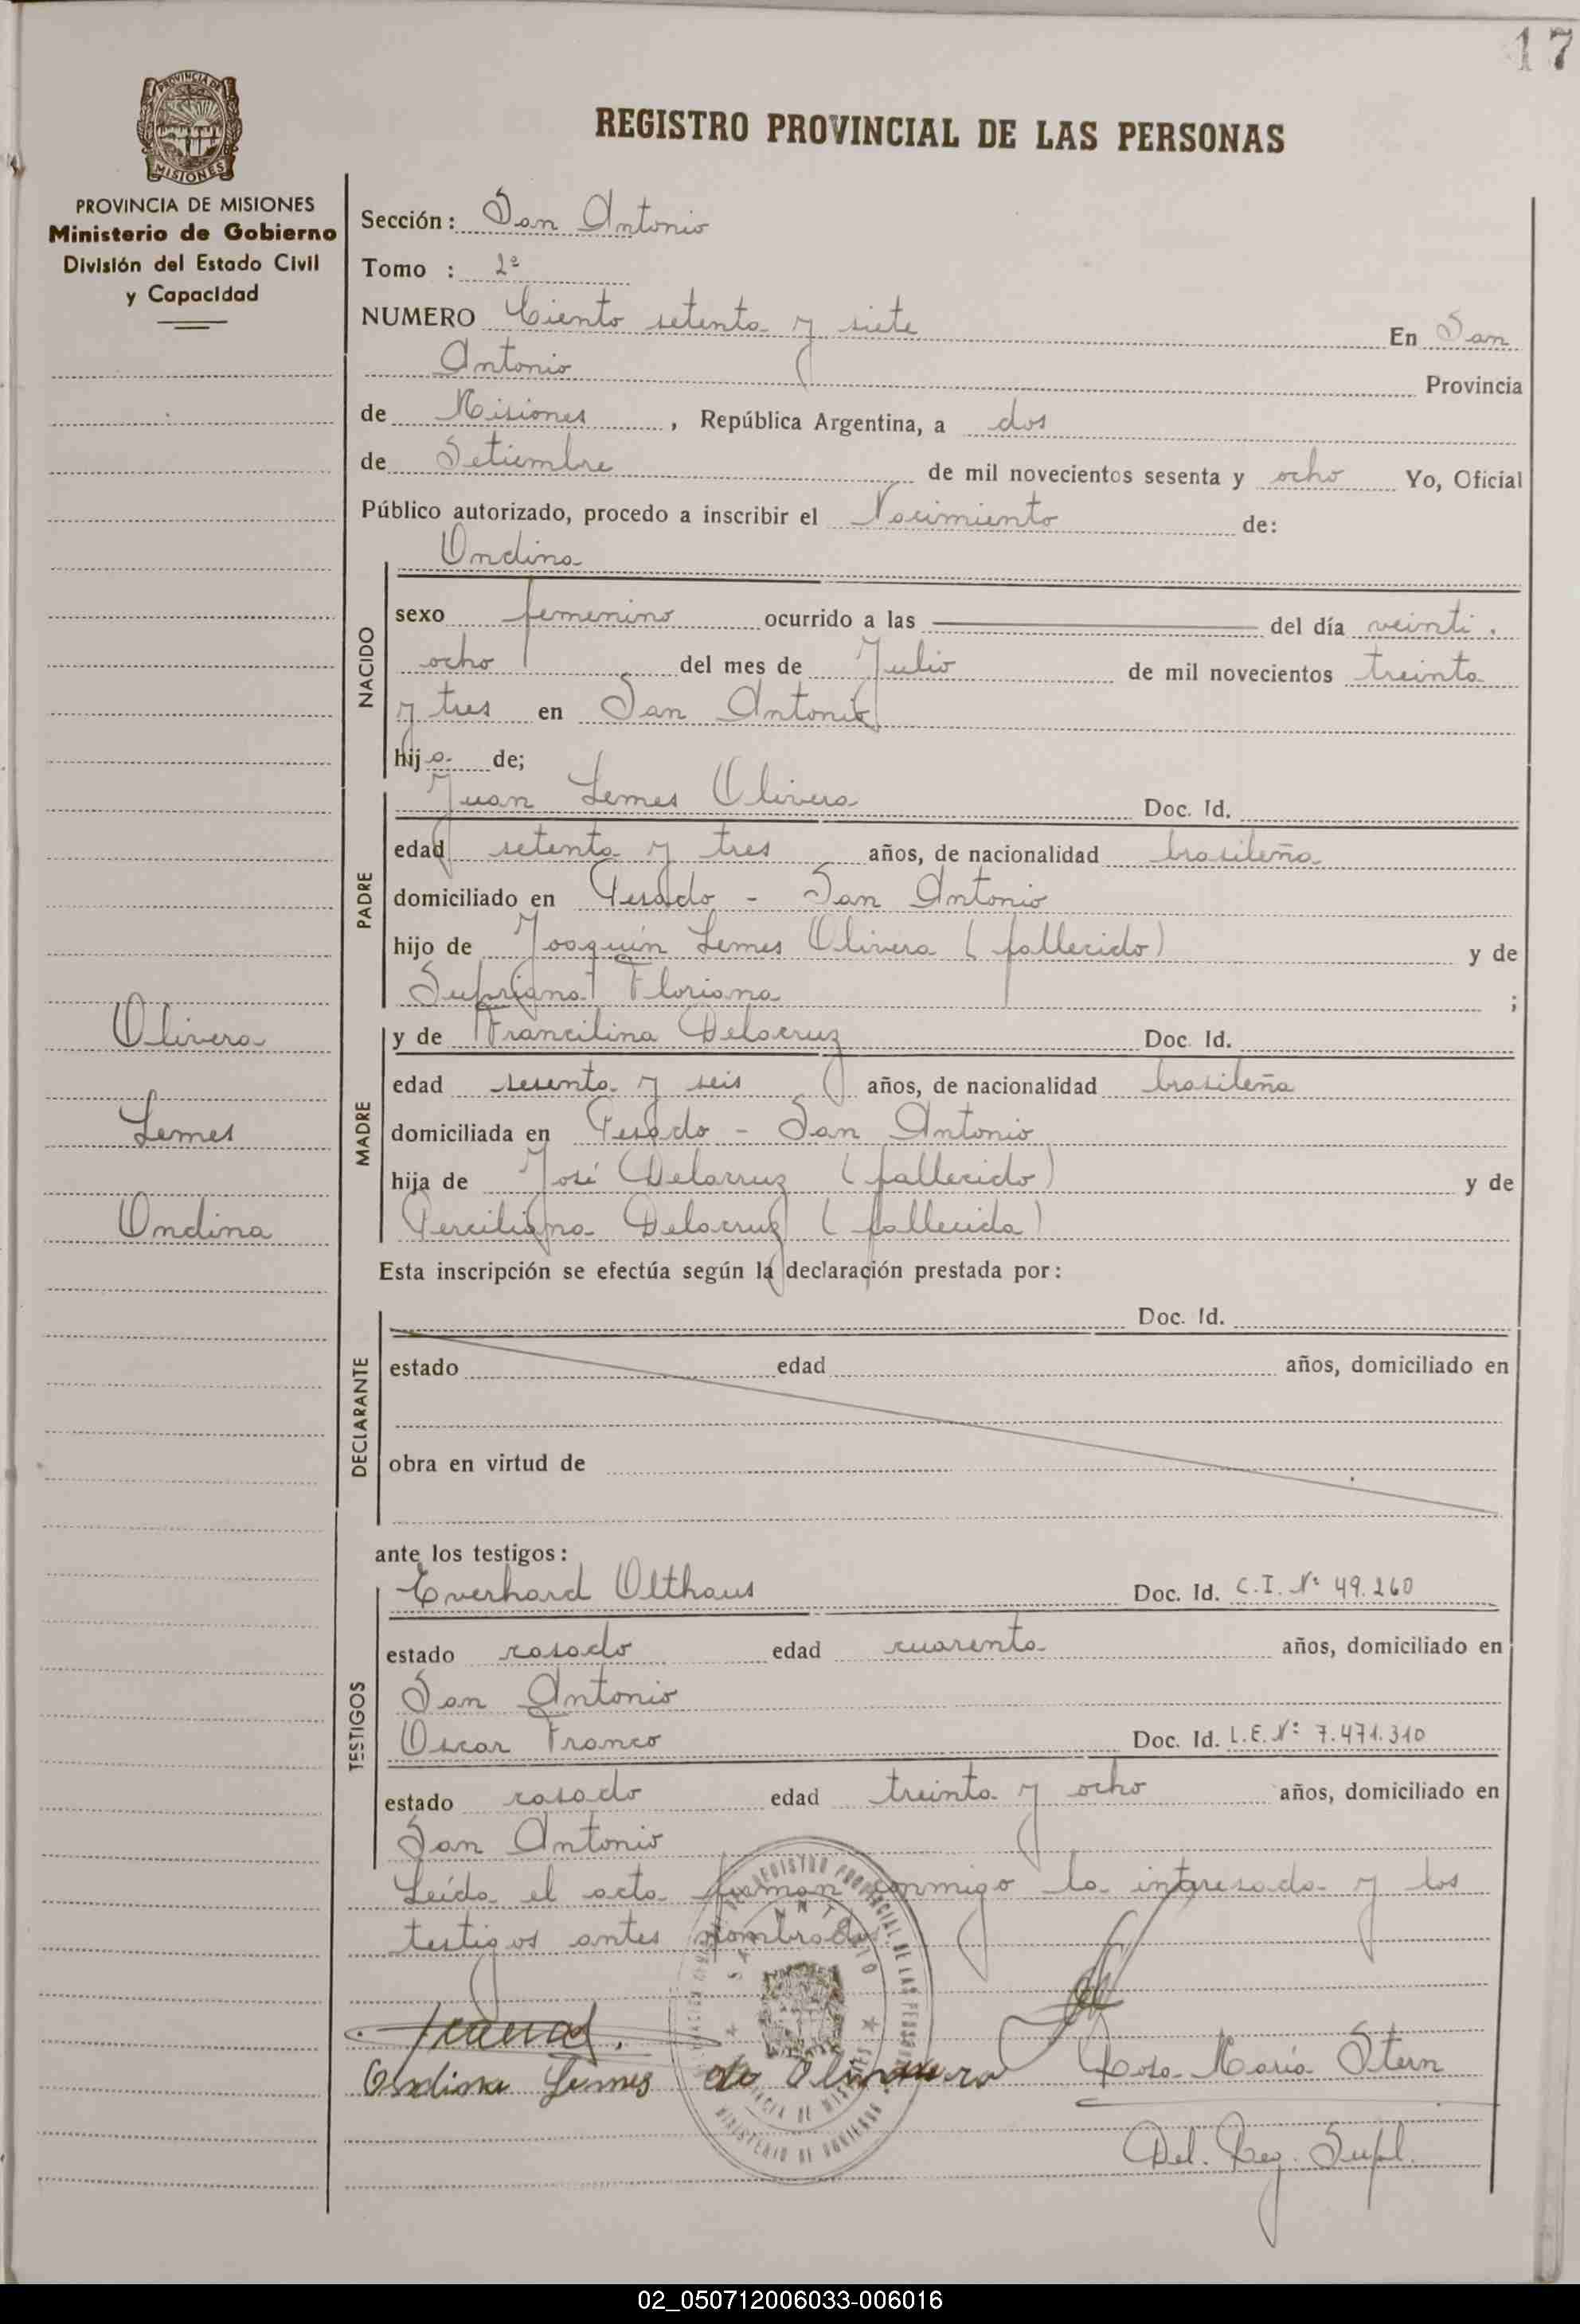 17
PROVINCIA DE
MISIONES
REGISTRO PROVINCIAL DE LAS PERSONAS
PROVINCIA DE MISIONES
Ministerio de Gobierno
División del Estado Civil
y Capacidad
Sección: San Antonio
Tomo : 2º
NUMERO Ciento setenta y siete En San
Antonio Provincia
de Misiones, República Argentina, a dos
de Setiembre de mil novecientos sesenta y ocho Yo, Oficial
Público autorizado, procedo a inscribir el Nacimiento de:
NACIDO
Ondina
sexo femenino ocurrido a las del día veinti.
ocho del mes de Julio de mil novecientos treinta
y tres en San Antonio
hija de;
PADRE
Juan Lemes Olivera Doc. Id.
edad setenta y tres años, de nacionalidad brasileña
domiciliado en Pesado - San Antonio
hijo de Joaquín Lemes Olivera (fallecido) y de
Floriana ;
MADRE
y de Francilina Delacruz Doc. Id.
edad sesenta y seis años, de nacionalidad brasileña
domiciliada en Pesado - San Antonio
hija de José Delacruz (fallecido) y de
Perciliana Delacruz (fallecida)
Olivera
Lemes
Ondina
Esta inscripción se efectúa según la declaración prestada por:
DECLARANTE
Doc. Id.
estado edad años, domiciliado en
obra en virtud de
ante los testigos:
TESTIGOS
Everhard Olthaus Doc. Id. C.I. Nº 49.260
estado casado edad cuarenta años, domiciliado en
San Antonio
Oscar Franco Doc. Id. L.E. Nº 7.471.310
estado casado edad treinta y ocho años, domiciliado en
San Antonio
Leída el acta firman conmigo la interesada y los
testigos antes nombrados
REGISTRO PROVINCIAL DE LAS PERSONAS
SAN ANTONIO
MINISTERIO DE GOBIERNO
Ondina Lemes de
Rosa María Stern
Del. Reg. Supl.
02_050712006033-006016